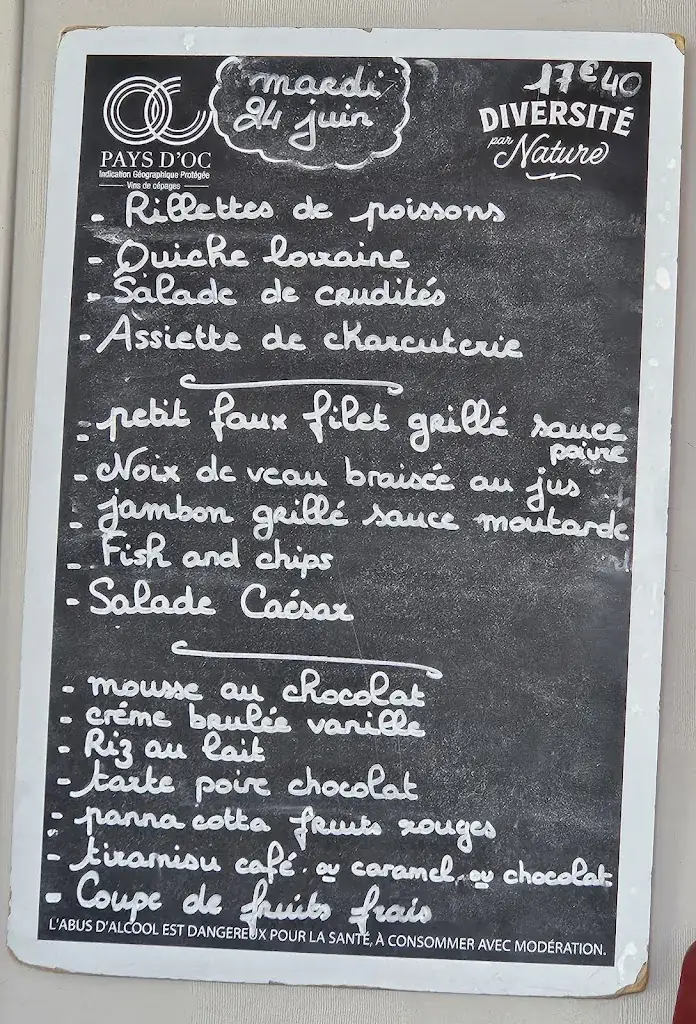 mardi
24 juin
17€40
PAYS D'OC
Indication Géographique Protégée
Vins de cépages
DIVERSITÉ
par Nature
- Rillettes de poissons
- Quiche lorraine
- Salade de crudités
- Assiette de charcuterie
- petit faux filet grillé sauce
poivre
- Noix de veau braisée au jus
- jambon grillé sauce moutarde
- Fish and chips
- Salade Caésar
- mousse au chocolat
- créme brulée vanille
- Riz au lait
- tarte poire chocolat
- panna cotta fruits rouges
- tiramisu café. ou caramel. ou chocolat
- Coupe de fruits frais
L'ABUS D'ALCOOL EST DANGEREUX POUR LA SANTÉ, À CONSOMMER AVEC MODÉRATION.